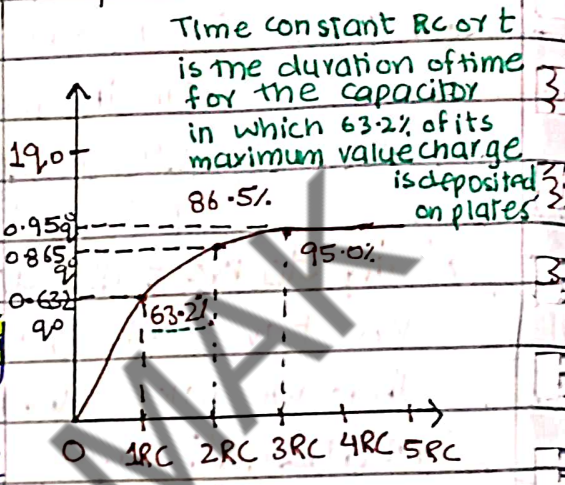 Time constant RC or t
is the duration of time
for the capacitor
in which 63.2% of its
maximum value charge
is deposited
on plates
1q0
86.5%
0.95q0
95.0%
0.865
q0
0.632
q0
63.2%
0 1RC 2RC 3RC 4RC 5RC
MAK